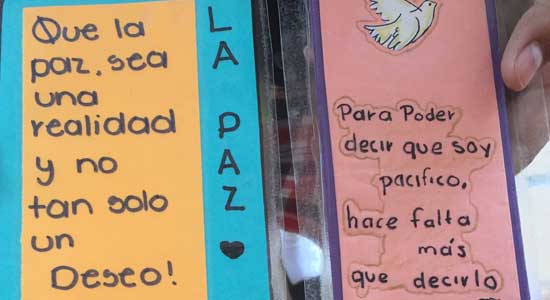 Que la
paz, sea
una
realidad
y no
tan solo
un
Deseo!
LA PAZ
Para Poder
decir que soy
pacifico,
hace falta
más
que decirlo